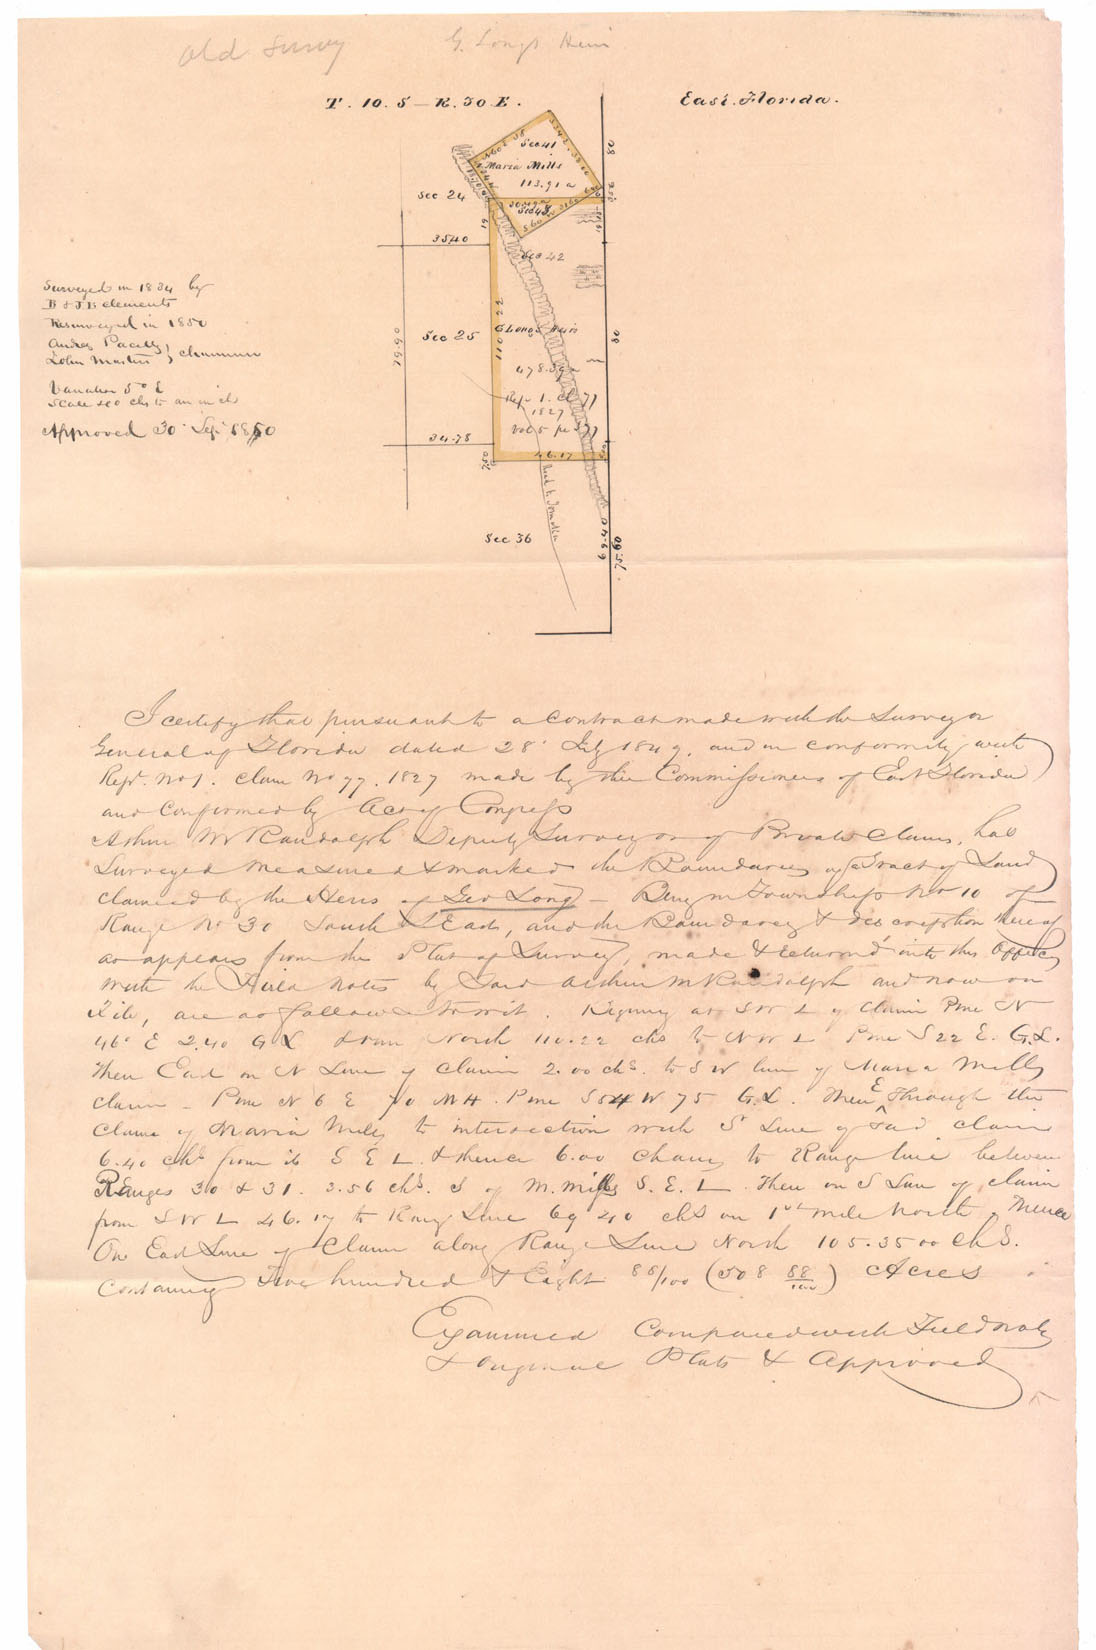 Old Survey
G. Longs Heirs
T. 10. S — R. 30 E.
East. Florida.
Sec 41
Maria Mills
113.91 a
Sec 24
35.40
Sec 42
Surveyed in 1834 by
B & J B Clements
Resurveyed in 1850
Andres Pacetty
John Masters } chainmen
Variation 5° E
Scale 400 chs to an inch
Approved 30 Sep. 1850
Sec 25
79.90
110.22
G Longs Heirs
478.
Rep. 1. Cl 77
1827
Vol 5 pe
34.78
7.50
46.17
Road to Tomoka
Sec 36
80
80
69.40
75.60
I certify that pursuant to a contract made with the Surveyor
General of Florida dated 28' July 1849. and in conformity with
Rept. No 1. Claim No 77. 1827 made by the Commissioners of East Florida
and confirmed by Act of Congress
Arthur M Randolph Deputy Surveyor of Private Claims, has
Surveyed Measured & marked the Boundaries of a Tract of Land
claimed by the Heirs of Geo Long — Being in Township No 10 of
Range No 30 South & East, and the Boundaries & description thereof
as appears from the Plat of Survey, made & returned into this Office
with the Field notes by Said Arthur M Randolph and now on
File, are as follows to wit. Begining at S W L of Claim Pine N
46° E 2.40 G L & run North 110.22 chs to N W L Pine S 22 E. G.L.
Then East on N Line of Claim 2.00 chs. to S W line of Maria Mills
claim — Pine N 6 E 70 M H. Pine S 54 W 75 G.L. Then E Through the
Claim of Maria Mills to intersection with S' Line of Said claim
6.40 chs from its S E L. & thence 6.00 chains to Range line between
Ranges 30 & 31. 3.56 chs. S of M. Mills S. E. L. Then on S Line of claim
from S W L 46.17 to Rang Line 69 40 chs on 1st mile North, Thence
On East Line of Claim along Range Line North 105.35 00 chs.
Containing Five hundred & Eight 88/100 (508 88/100) Acres
Examined Compared with Field notes
& original Plats & Approved